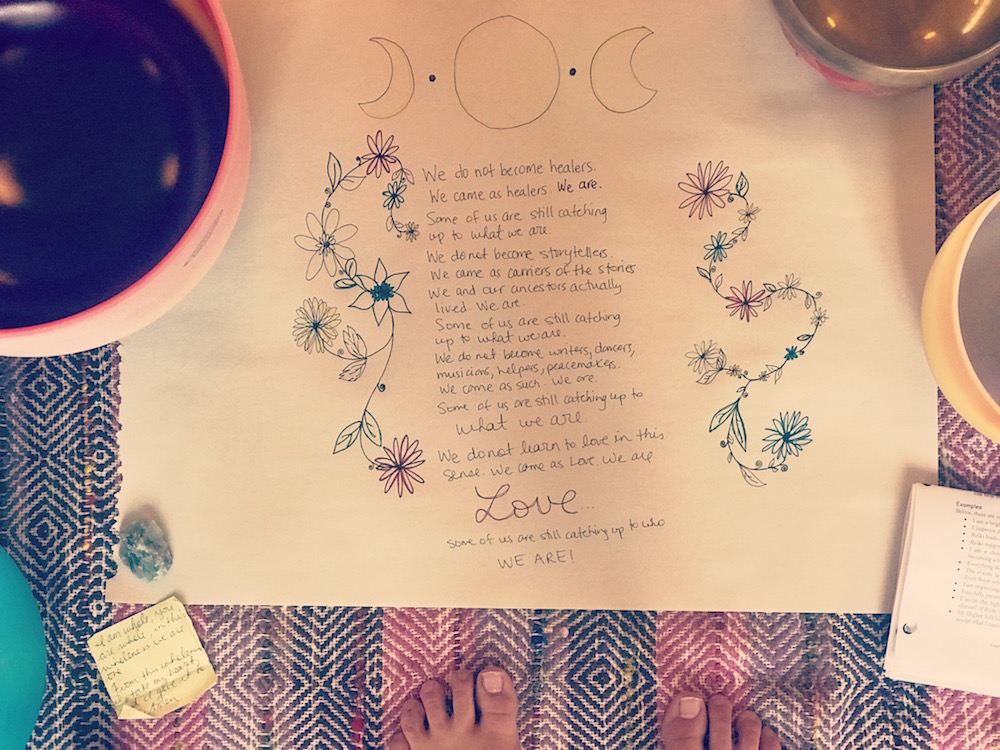 We do not become healers.
We came as healers. We are.
Some of us are still catching
up to what we are.
We do not become storytellers.
We came as carriers of the stories
we and our ancestors actually
lived. We are.
Some of us are still catching
up to what we are.
We do not become writers, dancers,
musicians, helpers, peacemakers.
We came as such. We are.
Some of us are still catching up to
what we are.
We do not learn to love in this
sense. We came as Love. We are
Love...
some of us are still catching up to who
WE ARE!
I am whole, you
are whole, in this
wholeness we are
one
From this wholeness
I take my heart
Examples
Below, there are
I improve